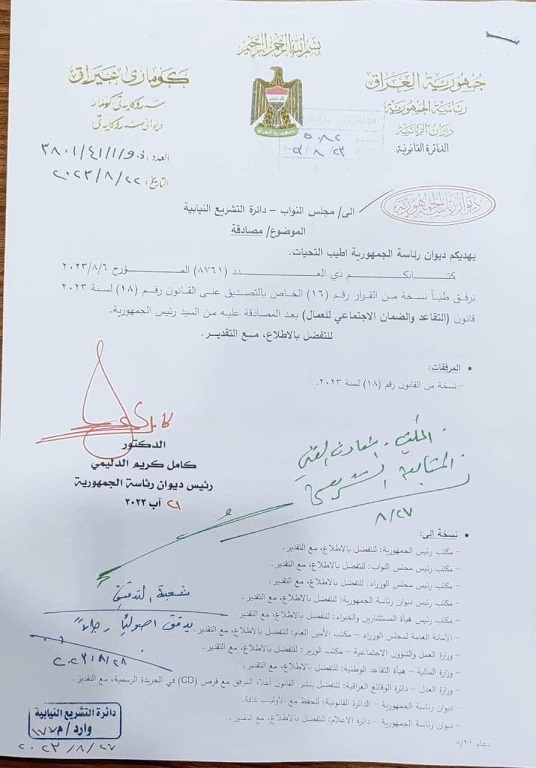 بسم الله الرحمن الرحيم
جمهورية العراق
رئاسة الجمهورية
ديوان الرئاسة
الدائرة القانونية
كۆماری عیراق
سەرۆکایەتی کۆمار
دیوانی سەرۆکایەتی
العدد: ذ.و/١/٤١/٣٨٠١
التاريخ: ٢٠٢٣/٨/٢٢
ديوان رئاسة الجمهورية
الى/ مجلس النواب – دائرة التشريع النيابية
الموضوع/ مصادقة
يهديكم ديوان رئاسة الجمهورية اطيب التحيات.
كتابكم ذي العدد (٨٧٦١) المؤرخ ٢٠٢٣/٨/٦
نرفق طياً نسخة من القرار رقم (١٦) الخاص بالتصديق على القانون رقم (١٨) لسنة ٢٠٢٣
قانون (التقاعد والضمان الاجتماعي للعمال) بعد المصادقة عليه من السيد رئيس الجمهورية.
للتفضل بالاطلاع، مع التقدير.
• المرفقات:
- نسخة من القانون رقم (١٨) لسنة ٢٠٢٣.
الدكتور
كامل كريم الدليمي
رئيس ديوان رئاسة الجمهورية
٢١ آب ٢٠٢٣
٨/٢٧
• نسخة الى:
- مكتب رئيس الجمهورية: للتفضل بالاطلاع، مع التقدير.
- مكتب رئيس مجلس النواب: للتفضل بالاطلاع، مع التقدير.
- مكتب رئيس مجلس الوزراء: للتفضل بالاطلاع، مع التقدير.
- مكتب رئيس ديوان رئاسة الجمهورية: للتفضل بالاطلاع، مع التقدير.
- مكتب رئيس هيأة المستشارين والخبراء: للتفضل بالاطلاع، مع التقدير.
- الامانة العامة لمجلس الوزراء - مكتب الأمين العام: للتفضل بالاطلاع، مع التقدير.
- وزارة العمل والشؤون الاجتماعية - مكتب الوزير: للتفضل بالاطلاع، مع التقدير.
- وزارة المالية - هيأة التقاعد الوطنية: للتفضل بالاطلاع، مع التقدير.
- وزارة العدل - دائرة الوقائع العراقية: للتفضل بنشر القانون أعلاه المرفق مع قرص (CD) في الجريدة الرسمية، مع التقدير.
- ديوان رئاسة الجمهورية - الدائرة القانونية: للحفظ مع الأوليات
- ديوان رئاسة الجمهورية - دائرة الاعلام: للتفضل بالاطلاع، مع التقدير.
شعبة التدقيق
يدقق اصوليا
٢٠٢٣/٨/٢٨
دائرة التشريع النيابية
وارد/
٢٠٢٣/٨/٢٧
دعاء ٨/٢١